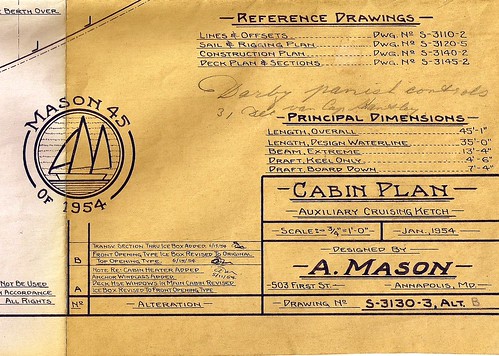 E BERTH OVER
REFERENCE DRAWINGS
LINES & OFFSETS DWG. Nº S-3110-2
SAIL & RIGGING PLAN DWG. Nº S-3120-5
CONSTRUCTION PLAN DWG. Nº S-3140-2
DECK PLAN & SECTIONS DWG. Nº S-3145-2
controls
PRINCIPAL DIMENSIONS
LENGTH, OVERALL 45'-1"
LENGTH, DESIGN WATERLINE 35'-0"
BEAM, EXTREME 13'-4"
DRAFT, KEEL ONLY 4'-6"
DRAFT, BOARD DOWN 7'-4"
MASON 45
OF 1954
CABIN PLAN
AUXILIARY CRUISING KETCH
SCALE:- ¾"=1'-0" JAN., 1954
DESIGNED BY
A. MASON
503 FIRST ST. ANNAPOLIS, MD.
DRAWING Nº S-3130-3, ALT. B
TRANSV. SECTION THRU ICE BOX ADDED
B FRONT OPENING TYPE ICE BOX REVISED TO ORIGINAL
TOP OPENING TYPE
NOTE RE: CABIN HEATER ADDED
ANCHOR WINDLASS ADDED
A DECK HSE WINDOWS IN MAIN CABIN REVISED
ICE BOX REVISED TO FRONT OPENING TYPE
Nº ALTERATION
NOT BE USED
IN ACCORDANCE
ALL RIGHTS